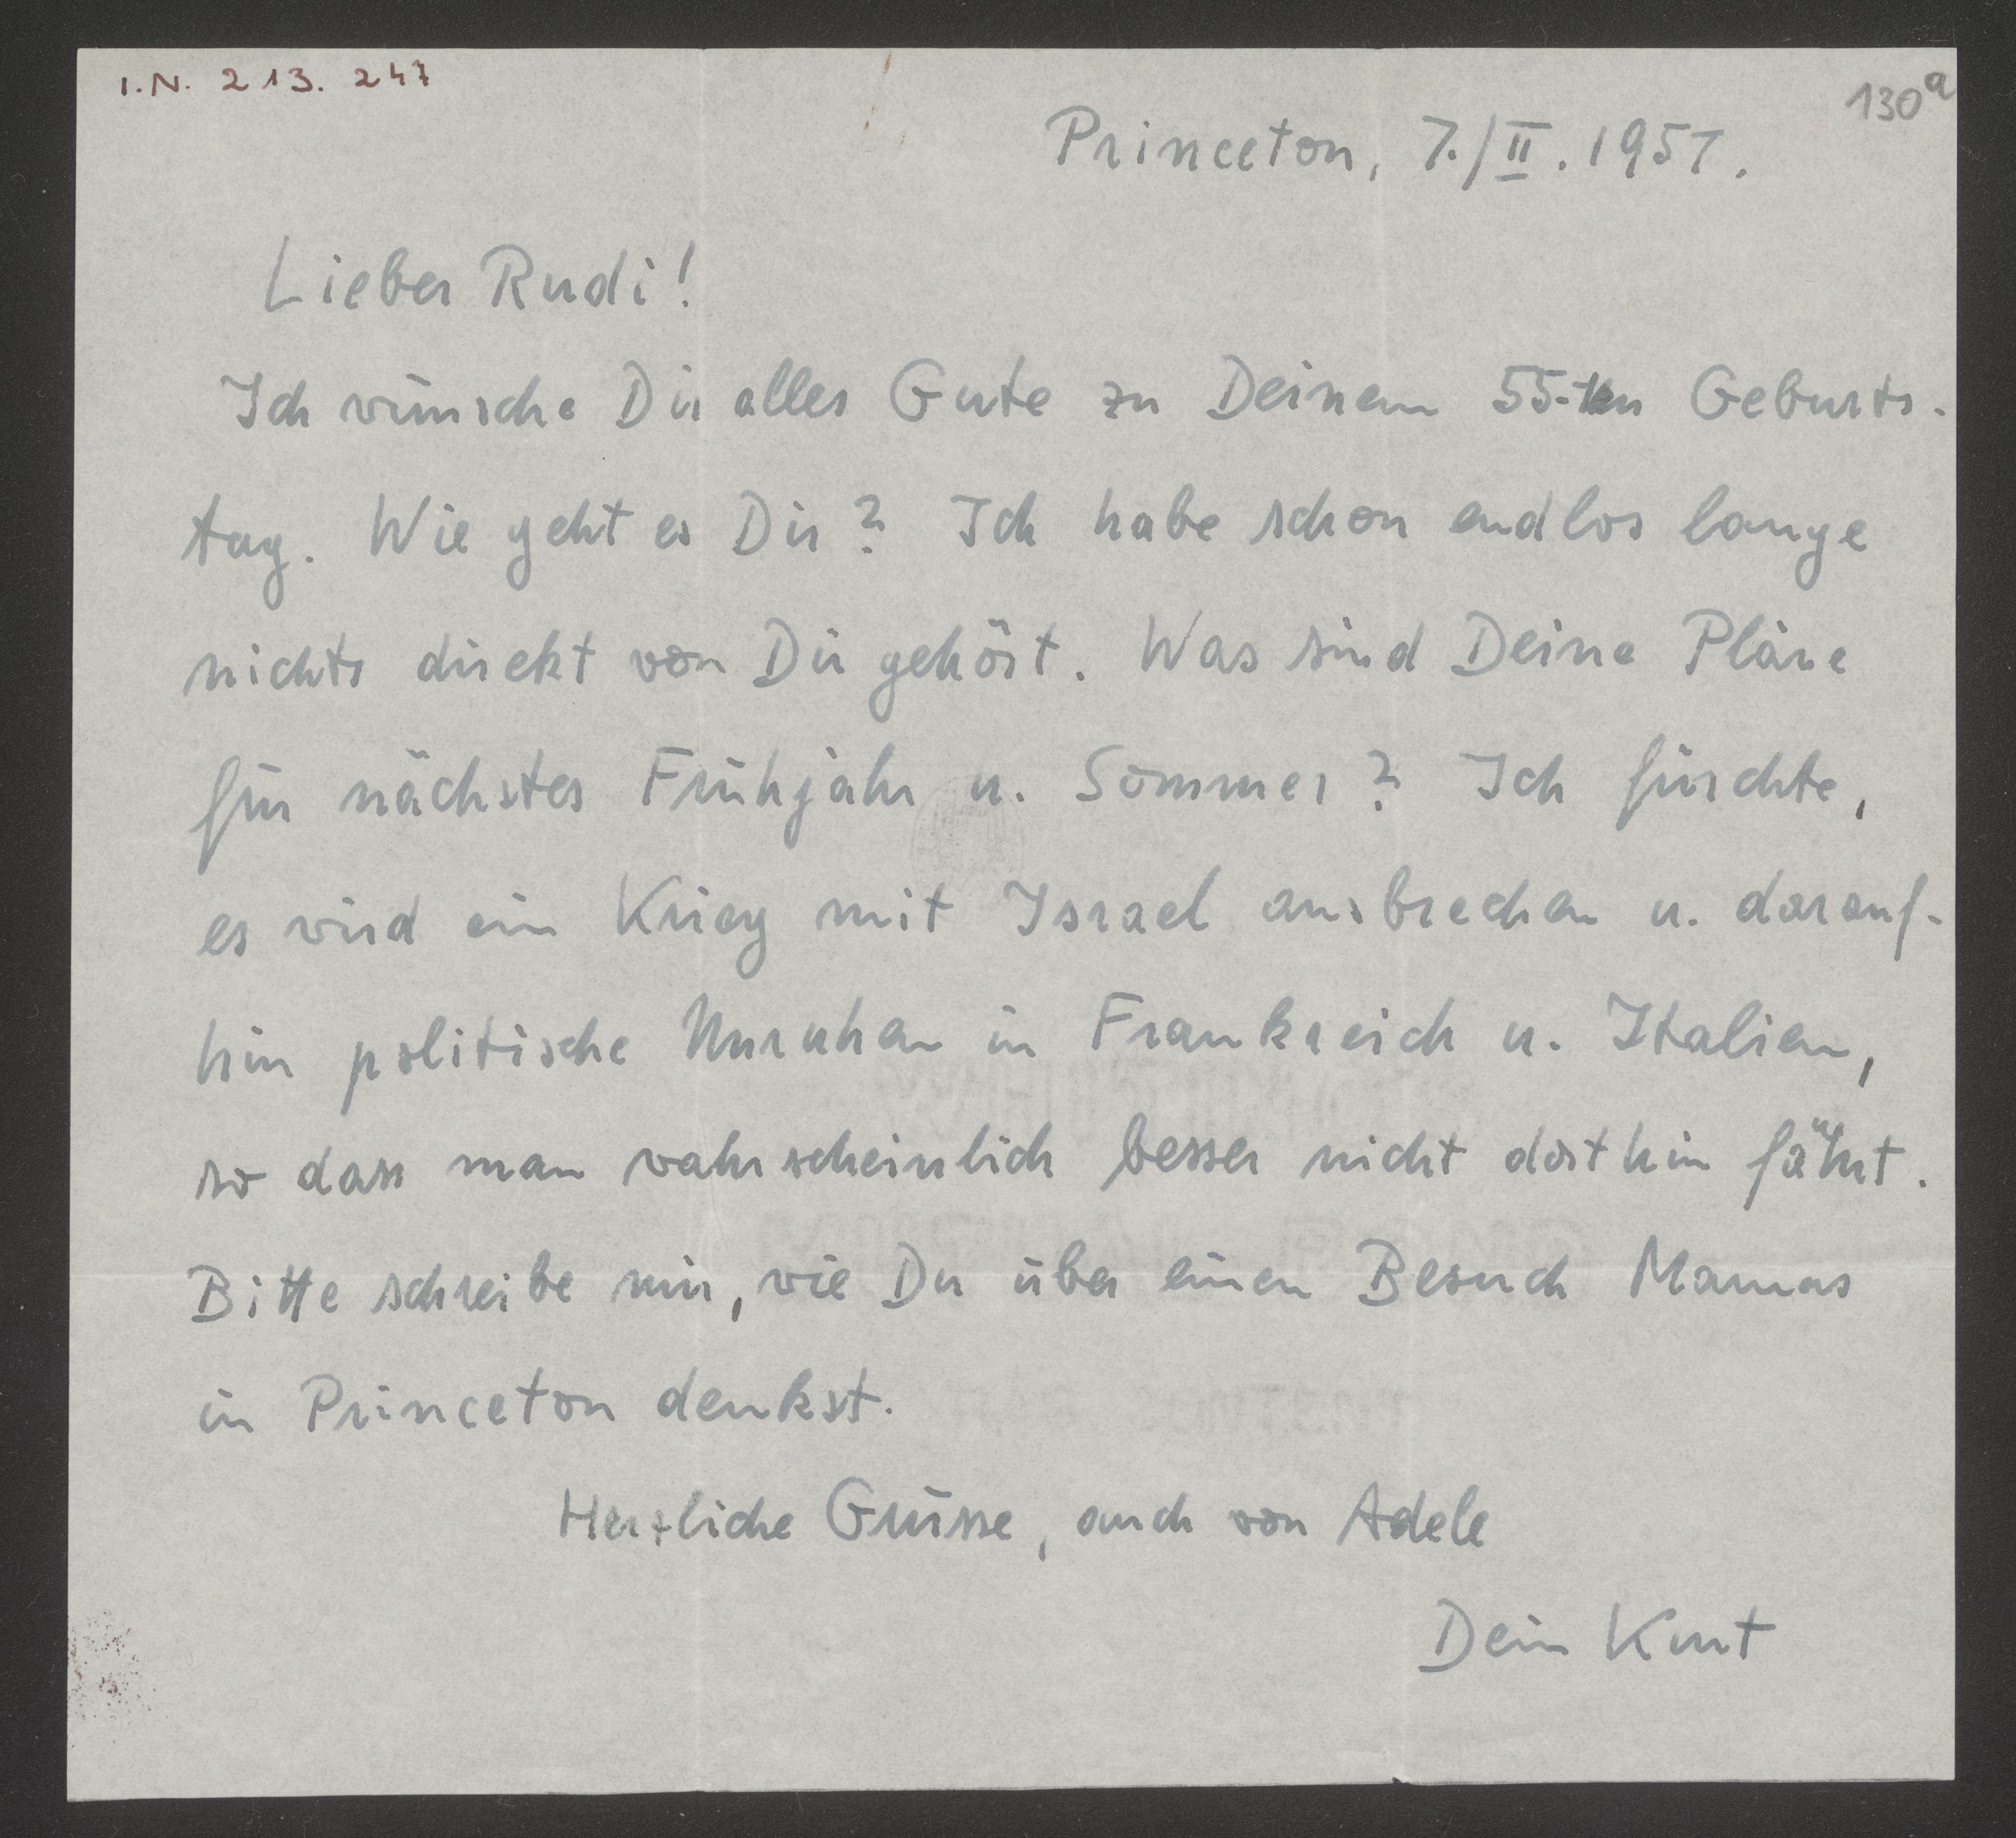 I.N. 213.247
130a
Princeton, 7./II. 1957.
Lieber Rudi!
Ich wünsche Dir alles Gute zu Deinem 55-ten Geburts-
tag. Wie geht es Dir? Ich habe schon endlos lange
nichts direkt von Dir gehört. Was sind Deine Pläne
für nächstes Frühjahr u. Sommer? Ich fürchte,
es wird ein Krieg mit Israel ausbrechen u. darauf-
hin politische Unruhen in Frankreich u. Italien,
so dass man wahrscheinlich besser nicht dorthin fährt.
Bitte schreibe mir, wie Du über einen Besuch Mamas
in Princeton denkst.
Herzliche Grüsse, auch von Adele
Dein Kurt